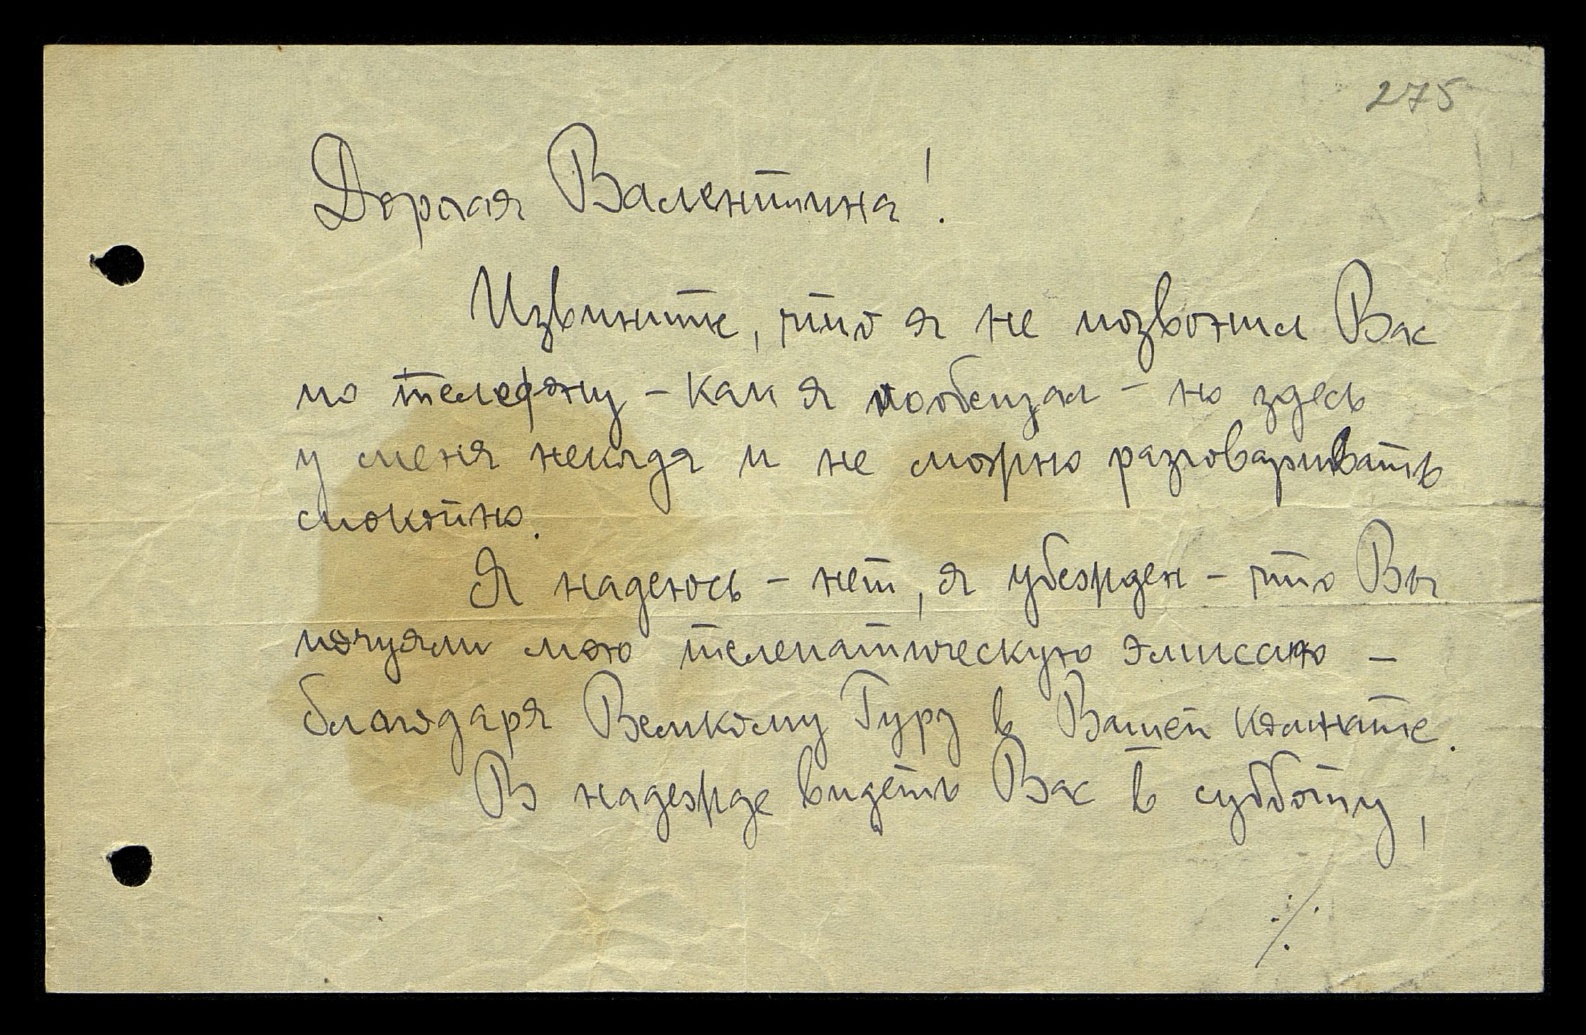 275
Дорогая Валентина!
Извините, что я не позвонил Вас
по телефону – как я пообещал – но здесь
у меня некогда и не можно разговаривать
спокойно.
Я надеюсь – нет, я убежден – что Вы
почуяли мою телепатическую эмиссию –
благодаря Великому Гуру в Вашей комнате.
В надежде видеть Вас в субботу,
./.